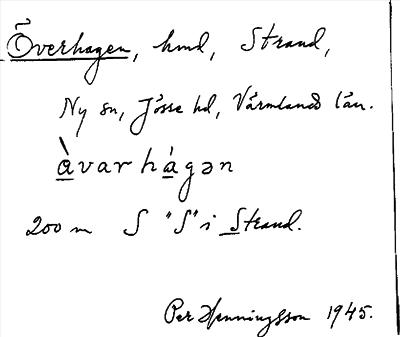 Överhagen, hmd, Strand,
Ny sn, Jösse hd, Värmlands län.
à̱varhá̱gən
200 m S "S" i Strand.
Per Henningsson 1945.